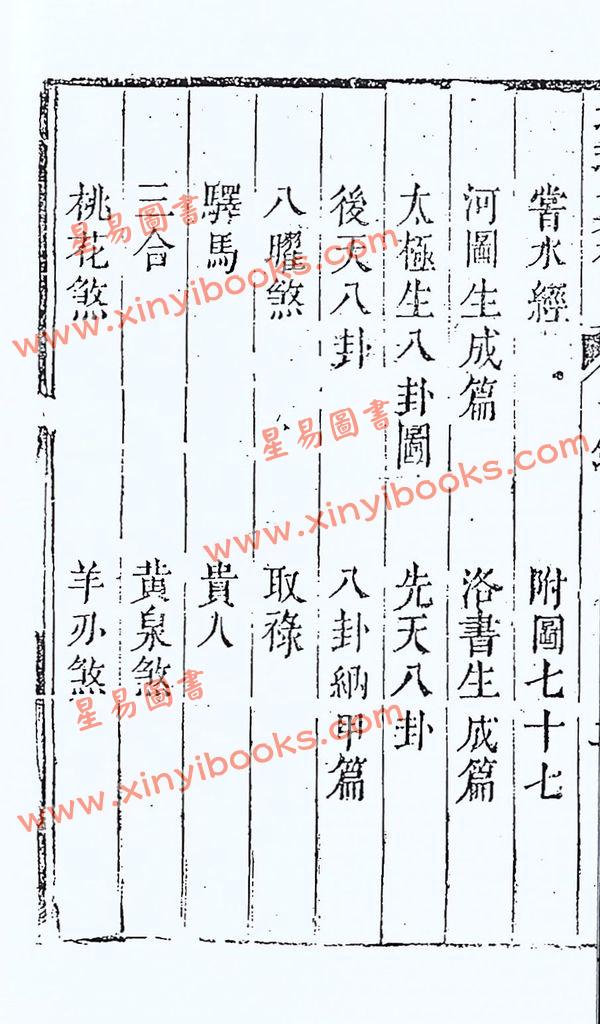 嘗水經 附圖七十七
河圖生成篇 洛書生成篇
太極生八卦圖 先天八卦
後天八卦 八卦納甲篇
八曜煞 取祿
驛馬 貴人
三合 黃泉煞
桃花煞 羊刃煞
星易圖書
www.xinyibooks.com
星易圖書
www.xinyibooks.com
星易圖書
www.xinyibooks.com